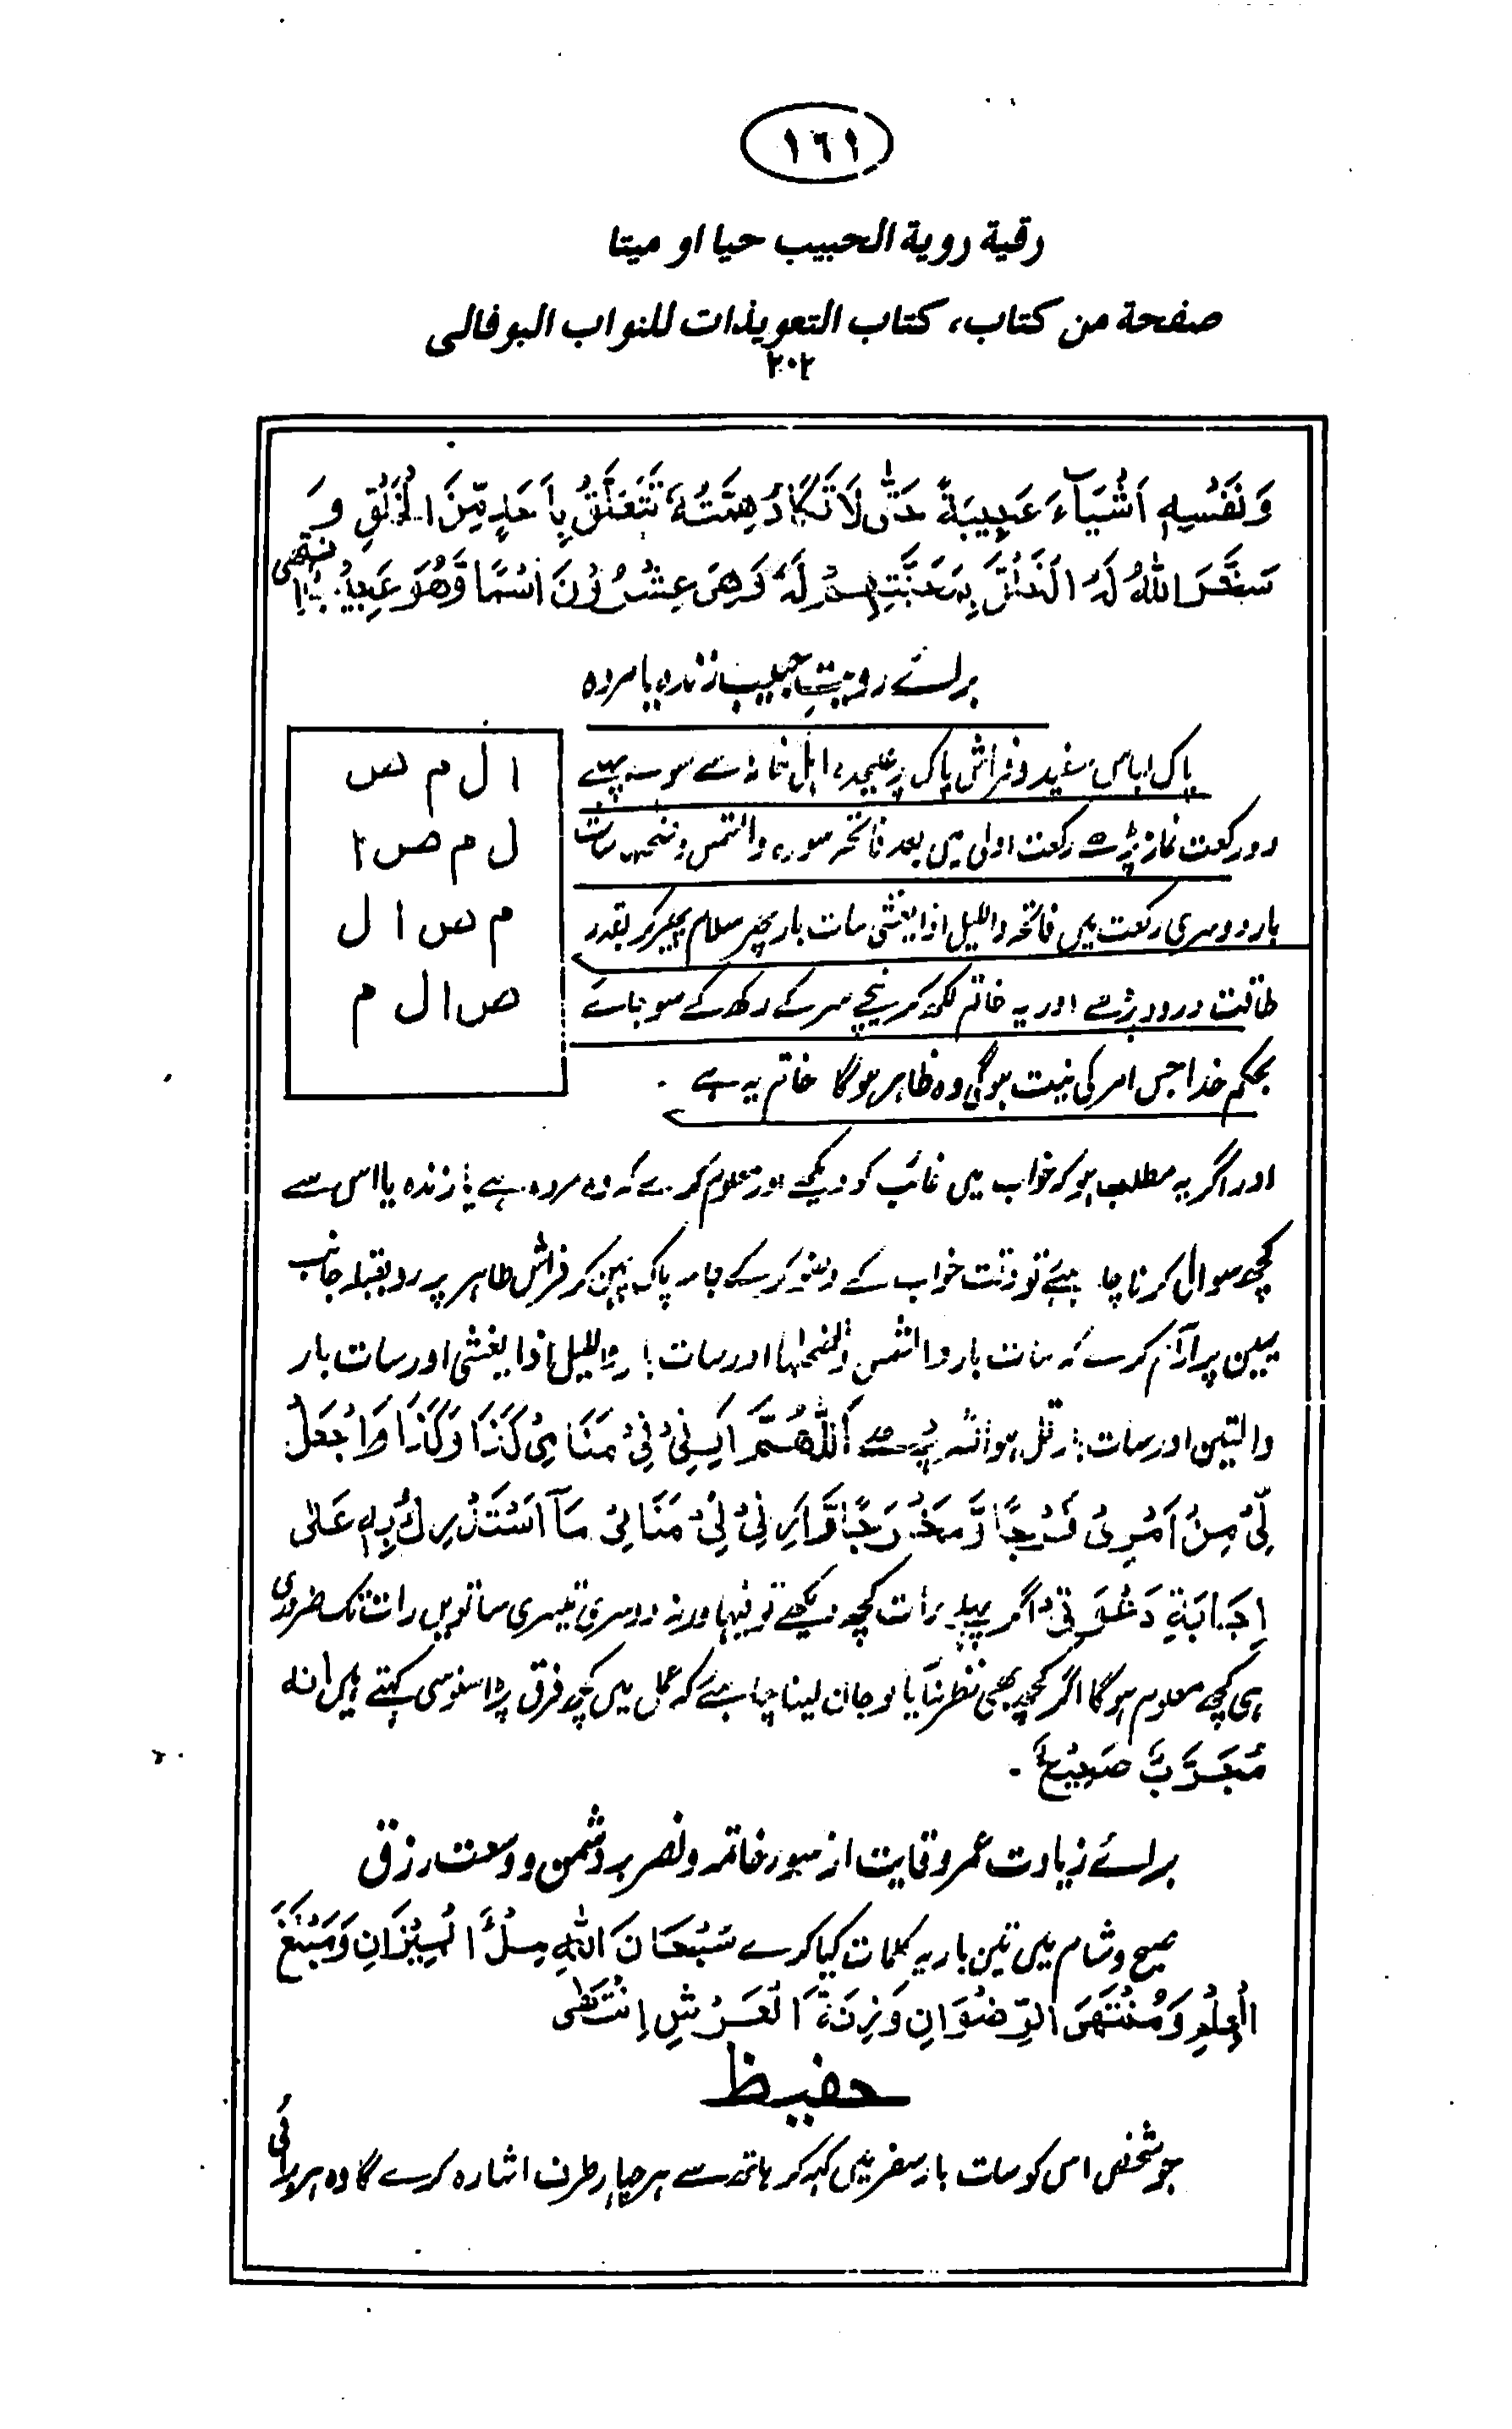 ١٦١
رقية روية الحبيب حيا او ميتا
صفحة من كتاب، كتاب التعويذات للنواب البوفالى
٢٠٢
وَنَفْسِهٖ اَشْيَآءَ عَجِيبَةً حَتّٰى لَا تَكَادُ هِمَّتُهٗ تَتَعَلَّقُ بِاَحَدٍ مِّنَ الْخَلْقِ وَ
سَخَّرَ اللّٰهُ لَهُ الْخَلْقَ بِمَحَبَّتِهِمْ لَهٗ وَهِىَ عِشْرُوْنَ اسْمًا وَّهُوَ عَجِيْبٌ انتهى
برائے رویتِ حبیب زندہ یا مردہ
پاک لباس سفید و فراش پاک پر علیحدہ اہل خانہ سے سوے پہلے
دو رکعت نماز پڑھے رکعت اولی میں بعد فاتحہ سورہ والشمس وضحہا سات
بار دوسری رکعت میں فاتحہ واللیل اذا یغشی سات بار پھر سلام پھیر کر بقدر
طاقت درود پڑھے اور یہ خاتم لکھ کر نیچے سر کے رکھ کے سو جائے
بحکم خدا جس امر کی نیت ہوگی وہ ظاہر ہوگا خاتم یہ ہے ۔
ا ل م ص
ل م ص ا
م ص ا ل
ص ا ل م
اور اگر یہ مطلب ہو کہ خواب میں غائب کو دیکھے اور معلوم کرے کہ وہ مردہ ہے یا زندہ یا اس سے
کچھ سوال کرنا چاہئے تو وقت خواب کے وضو کر کے جامہ پاک پہن کر فراش طاہر پر رو بقبلہ جانب
یمین پر آرام کرے کہ سات بار والشمس وضحٰہا اور سات بار واللیل اذا یغشی اور سات بار
والتین اور سات بار قل ہو اللہ پڑھے اَللّٰهُمَّ اَرِنِىْ فِىْ مَنَامِىْ كَذَا وَكَذَا وَاجْعَلْ
لِّىْ مِنْ اَمْرِىْ فَرَجًا وَّمَخْرَجًا وَّاَرِنِىْ فِىْ مَنَامِىْ مَآ اَسْتَدْرِكُ بِهٖ عَلٰى
اِجَابَةِ دَعْوَتِىْ اگر پہلے رات کچھ دیکھے تو فبہا ورنہ دوسری تیسری ساتویں رات تک ضرور ہی
ہی کچھ معلوم ہوگا اگر کچھ بھی نظر نآیا تو جان لینا چاہئے کہ عمل میں کچھ فرق پڑا سنوسی کہتے ہیں انہ
مُجَرَّبٌ صَحِيْحٌ ۔
برائے زیادت عمر وقایت از سوء خاتمہ ونصر بر دشمن ووسعت رزق
صبح وشام میں تین بار یہ کلمات کہا کرے سُبْحَانَ اللّٰهِ مِلْأَ الْمِيْزَانِ وَمَبْلَغَ
الْعِلْمِ وَمُنْتَهَى الرِّضْوَانِ وَزِنَةَ الْعَرْشِ اِنْتَهٰى
حفیظ
جو شخص اس کو سات بار سفر میں کہہ کر ہاتھ سے ہر چار طرف اشارہ کرے گا وہ ہر